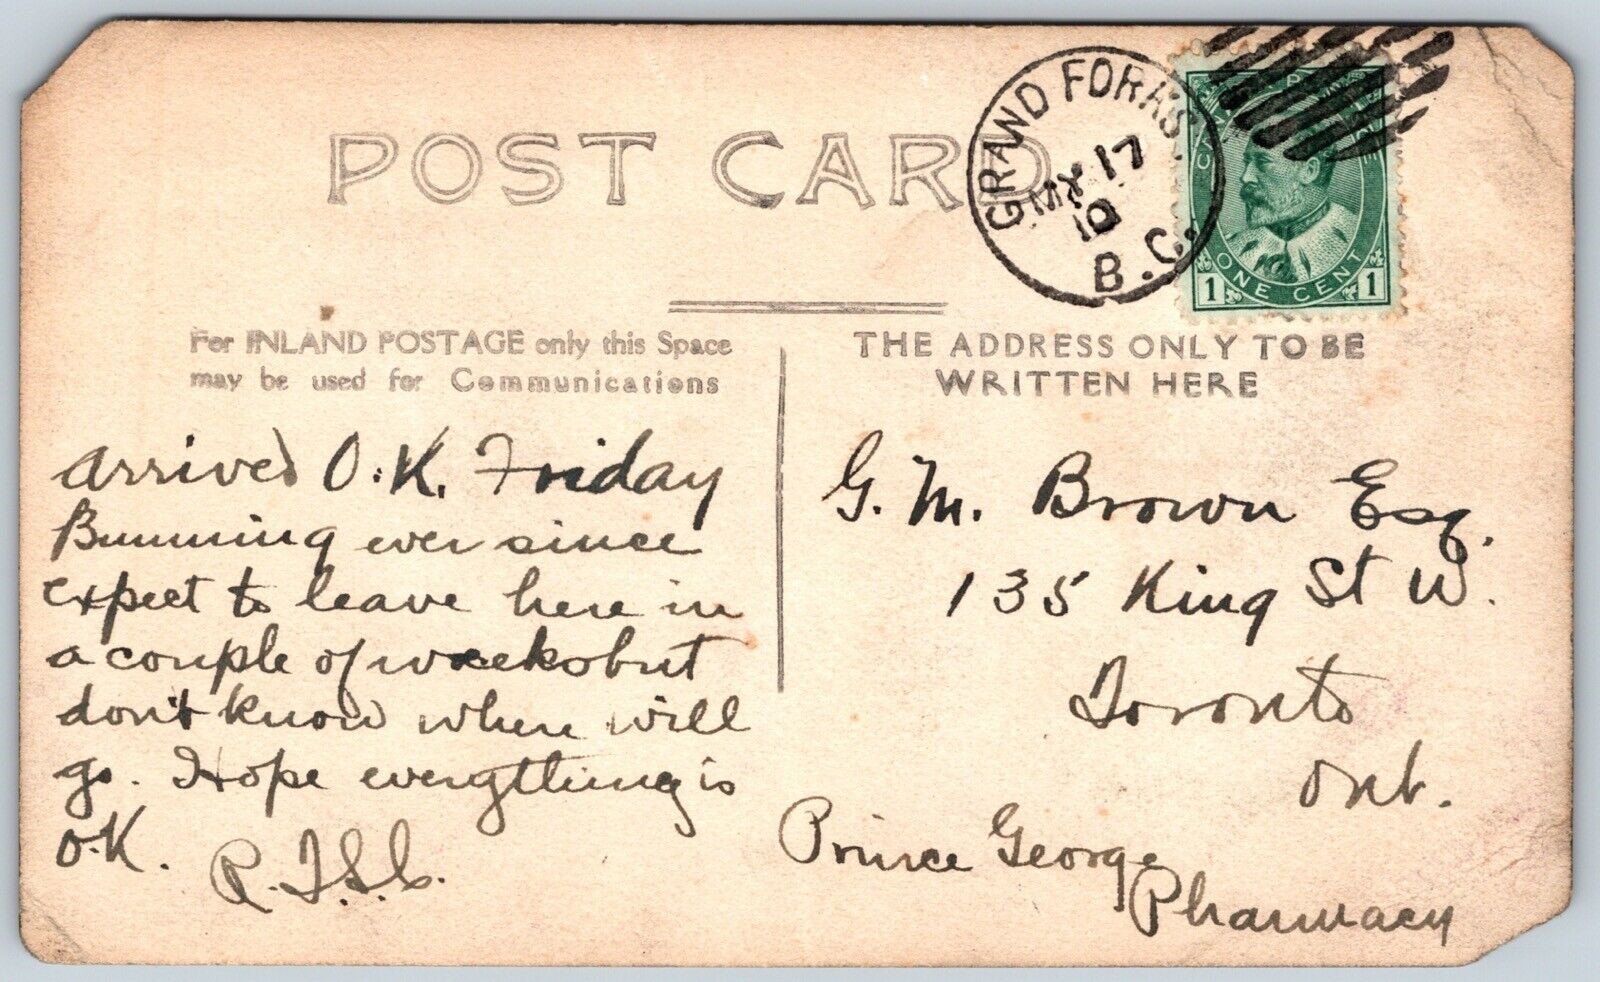 POST CARD
GRAND FORKS
MY 17
10
B.C.
CANADA POSTAGE
ONE CENT
1 1
For INLAND POSTAGE only this Space
may be used for Communications
THE ADDRESS ONLY TO BE
WRITTEN HERE
arrived O.K. Friday
Bumming ever since
expect to leave here in
a couple of weeks but
don't know where will
go. Hope everything is
O.K.
G. M. Brown Esq.
135 King St W.
Toronto
Ont.
Prince George
Pharmacy